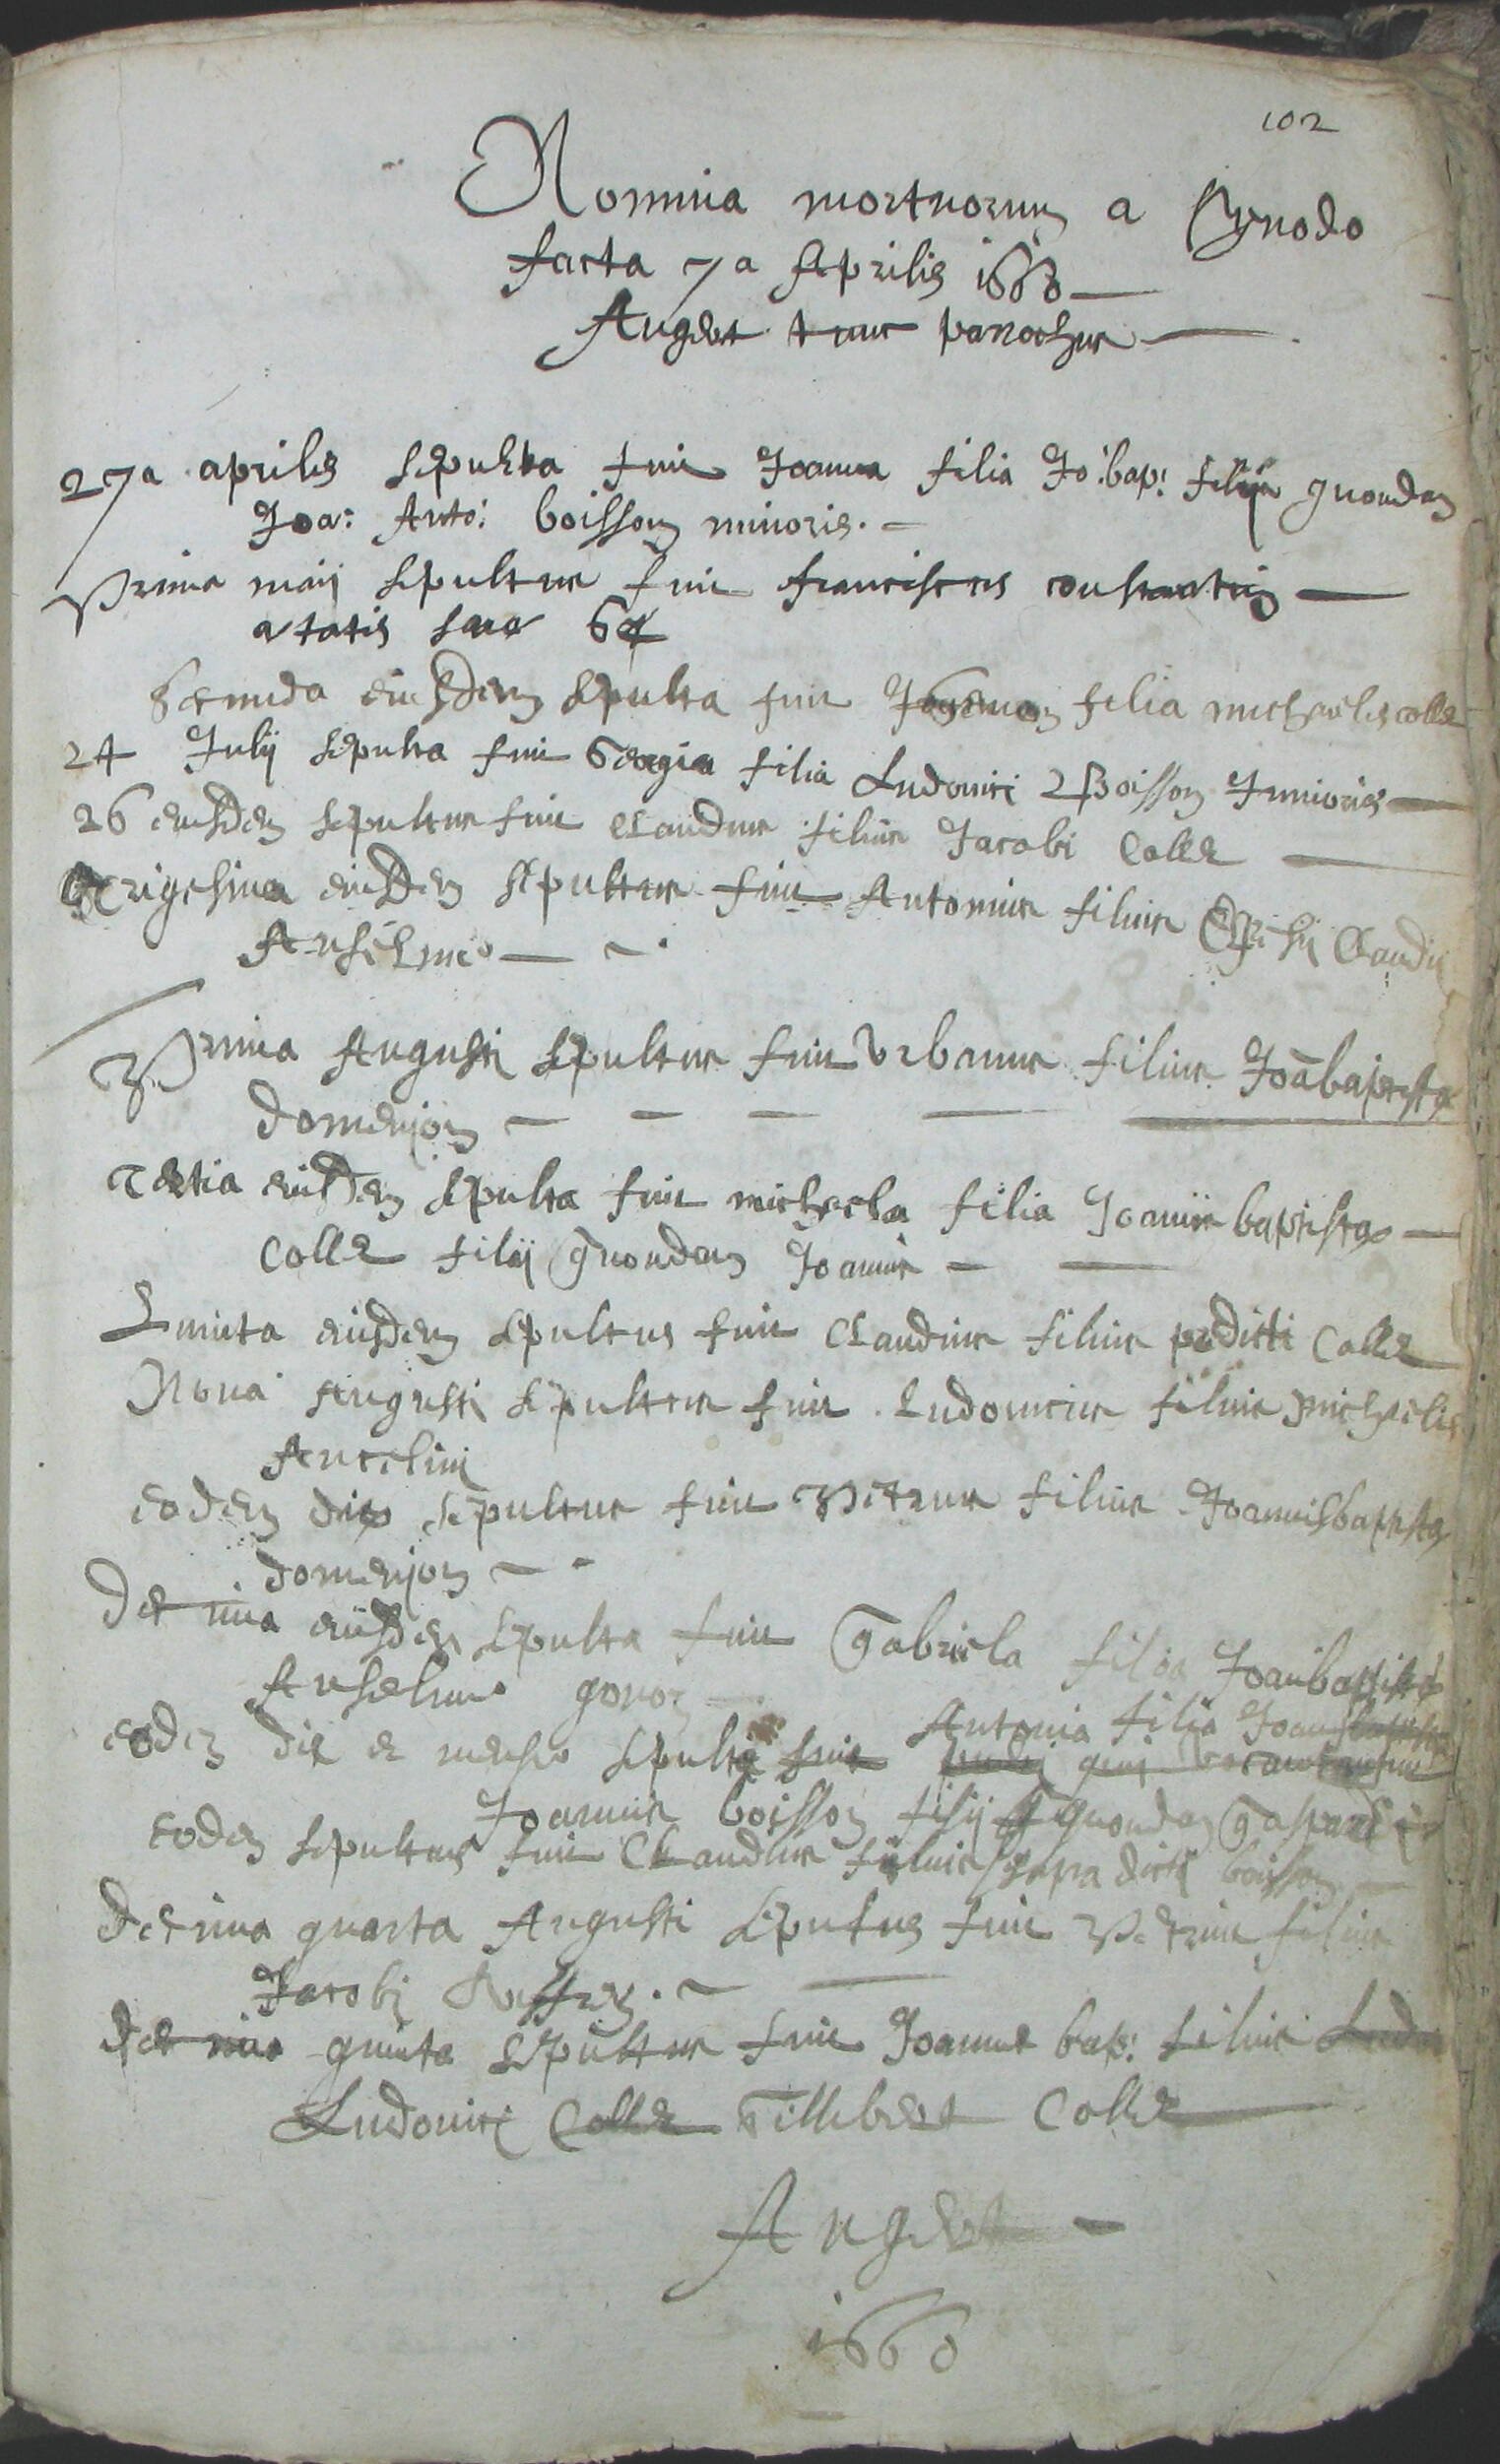 102
Nomina mortuorum a Synodo
facta 7a Aprilis 1660
Anget tunc parrochus
27a aprilis sepulta fuit Joanna filia Jo: bap: filij quondam
Joa: Anto: boisson minoris.
Prima maij sepultus fuit franciscus
ætatis suæ
Secunda eiusdem sepulta fuit filia michaelis colle
24 Julij sepulta fuit filia Ludovici Boisson Junioris
26 eiusdem sepultus fuit Claudius filius Jacobi Colle
Trigesima eiusdem sepultus fuit Antonius filius Claudii
Anselme
Prima Augusti sepultus fuit Urbanus filius Joābaptistæ
domenjon
Tertia eiusdem sepulta fuit michaela filia Joannis baptistæ
Colle filij quondam Joannis
Quinta eiusdem sepultus fuit Claudius filius prædicti Colle
Nona Augusti sepultus fuit Ludovicus filius Michaelis
Ancelin
eodem die sepultus fuit Petrus filius Joannisbaptistæ
domenjon
decima eiusdem sepulta fuit Gabriela filia Joanbaptistæ
Anselme
Antonia filia Joannis
eodem die et mense sepulta fuit
Joannis boisson filij quondam Gaspardi
eodem sepultus fuit Claudius filius supra dicti boisson
decima quarta Augusti sepultus fuit Petrus filius
Jacobi
decima quinta sepultus fuit Joannes bap: filius Ludo
Ludovici Colle Gillebert Colle
Anget
1660